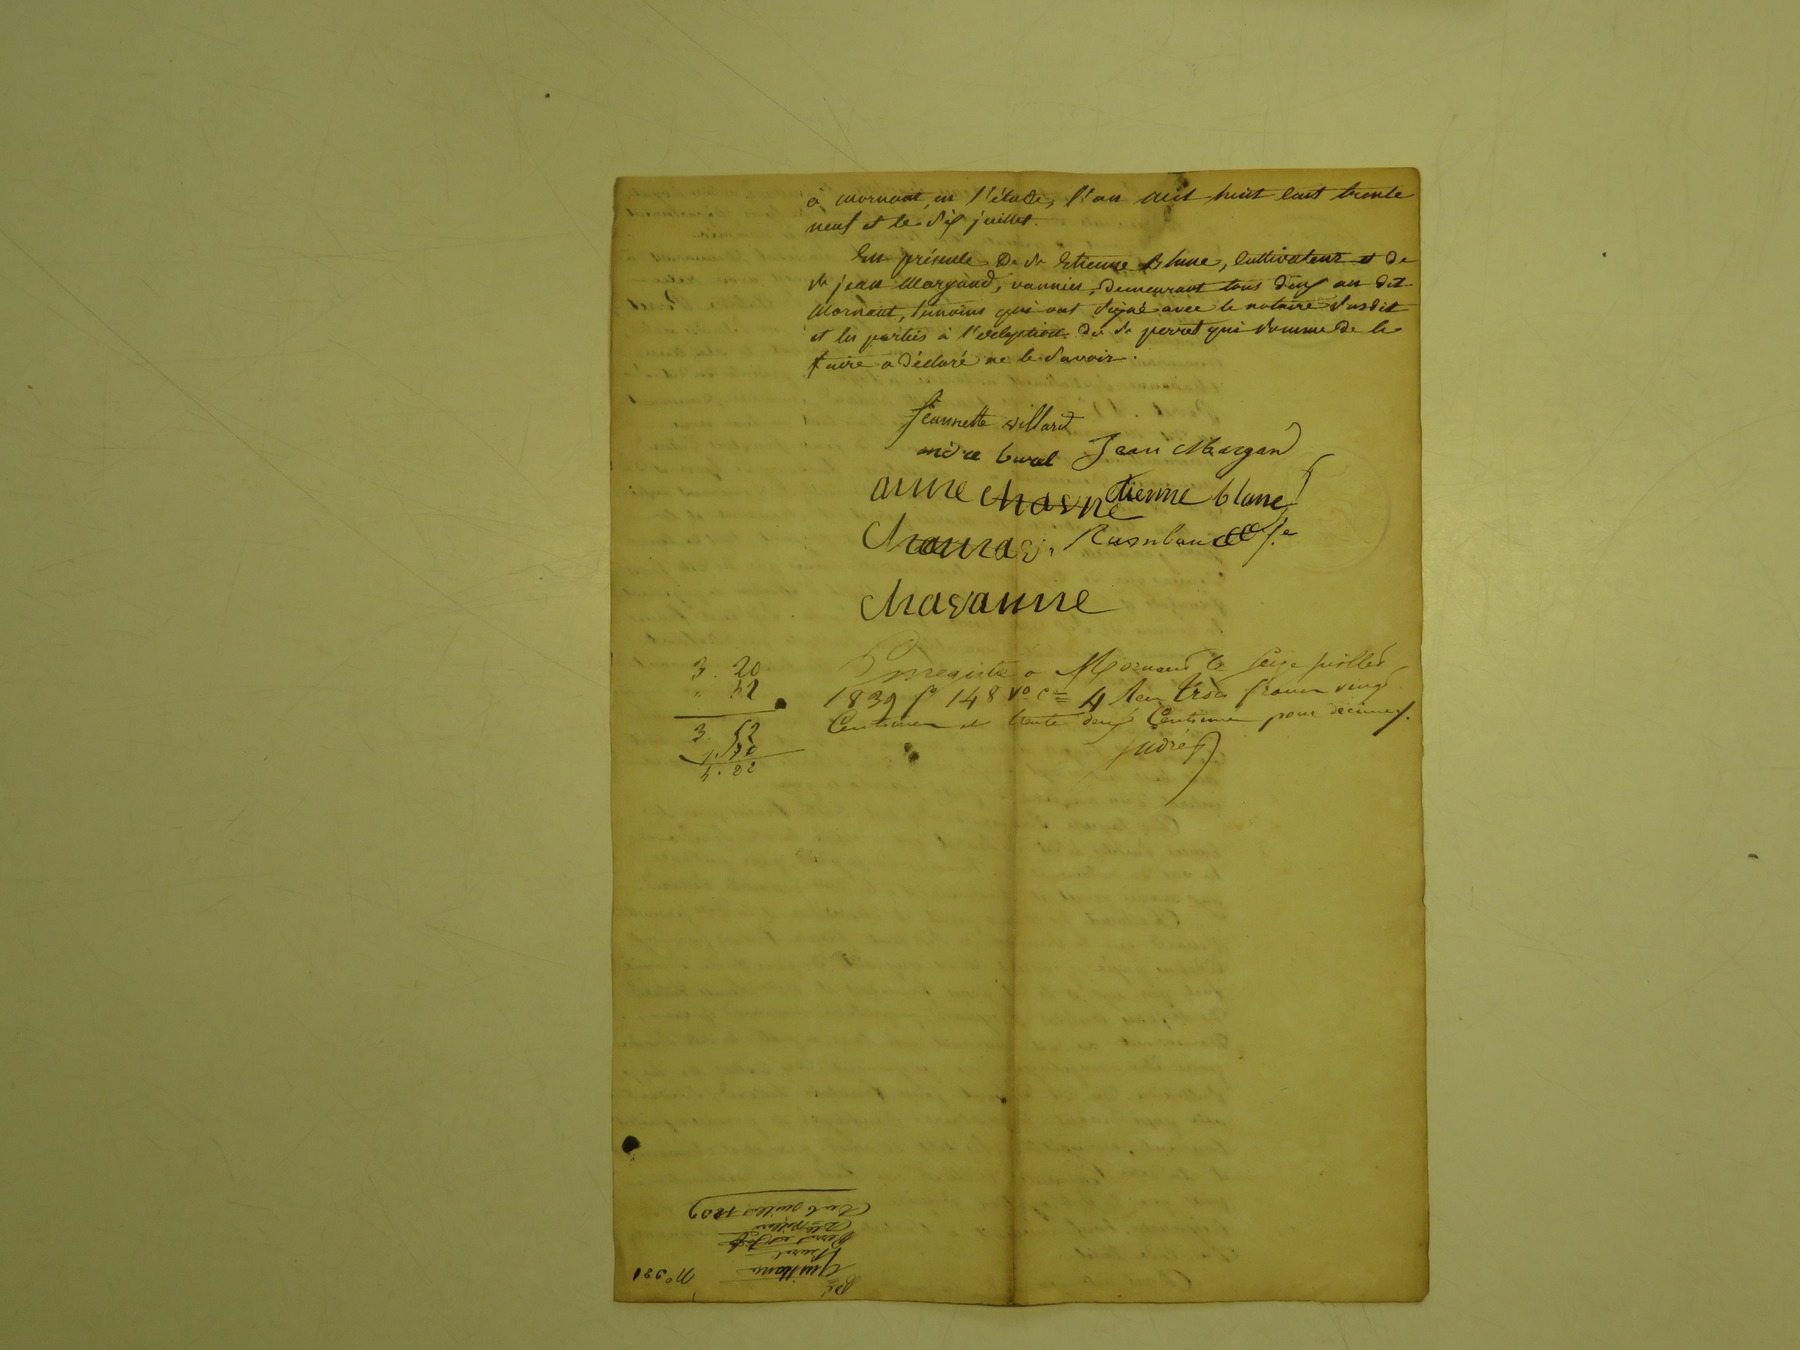 à mornant, en l'étude, l'an mil huit cent trente
neuf et le six juillet.
En présence de Sr Etienne Blanc, cultivateur et de
Sr jean Margand, vannier, demeurant tous deux au dit
Mornant, témoins qui ont signé avec le notaire susdit
et les parties à l'exception du Sr perret qui sommé de le
faire a déclaré ne le savoir.
Jeannette villard
andré burel Jean Margand
anne chavne Etienne blanc
chanav. Rambaud
chavanne
3. 20
" 32
3 52
4. 22
Enregistré a Mornant le seize juillet
1839 fo 148 vo ce 4 Reçu trois francs vingt
Centimes et trente deux Centimes pour décimes.
No 221
quittance
Burel
Du 6 juillet 1839